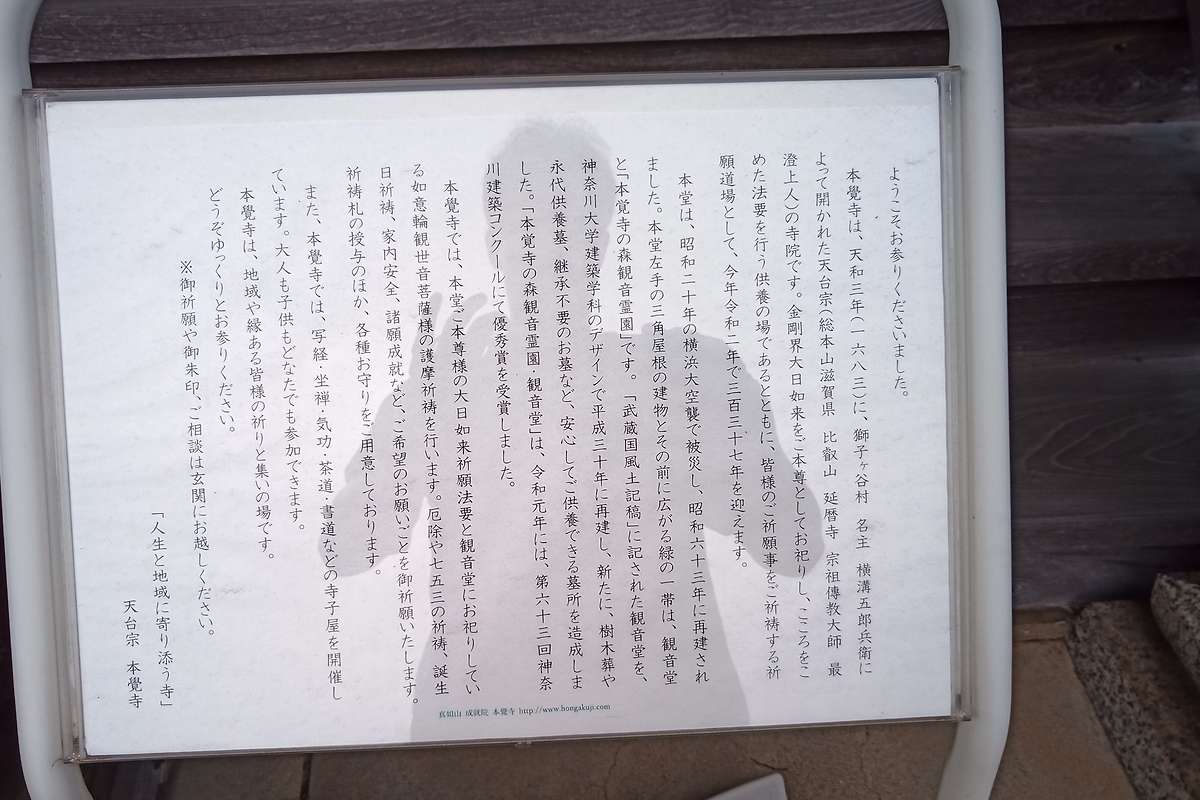 ようこそお参りくださいました。
本覺寺は、天和三年(一六八三)に、獅子ヶ谷村　名主　横溝五郎兵衛に
よって開かれた天台宗(総本山滋賀県　比叡山　延暦寺　宗祖傳教大師　最
澄上人)の寺院です。金剛界大日如来をご本尊としてお祀りし、こころをこ
めた法要を行う供養の場であるとともに、皆様のご祈願事をご祈祷する祈
願道場として、今年令和二年で三百三十七年を迎えます。
本堂は、昭和二十年の横浜大空襲で被災し、昭和六十三年に再建され
ました。本堂左手の三角屋根の建物とその前に広がる緑の一帯は、観音堂
と「本覚寺の森観音霊園」です。「武蔵国風土記稿」に記された観音堂を、
神奈川大学建築学科のデザインで平成三十年に再建し、新たに、樹木葬や
永代供養墓、継承不要のお墓など、安心してご供養できる墓所を造成しま
した。「本覚寺の森観音霊園・観音堂」は、令和元年には、第六十三回神奈
川建築コンクールにて優秀賞を受賞しました。
本覺寺では、本堂ご本尊様の大日如来祈願法要と観音堂にお祀りしてい
る如意輪観世音菩薩様の護摩祈祷を行います。厄除や七五三の祈祷、誕生
日祈祷、家内安全、諸願成就など、ご希望のお願いごとを御祈願いたします。
祈祷札の授与のほか、各種お守りをご用意しております。
また、本覺寺では、写経・坐禅・気功・茶道・書道などの寺子屋を開催し
ています。大人も子供もどなたでも参加できます。
本覺寺は、地域や縁ある皆様の祈りと集いの場です。
どうぞゆっくりとお参りください。
※御祈願や御朱印、ご相談は玄関にお越しください。
「人生と地域に寄り添う寺」
天台宗　本覺寺
真如山 成就院 本覺寺 http://www.hongakuji.com